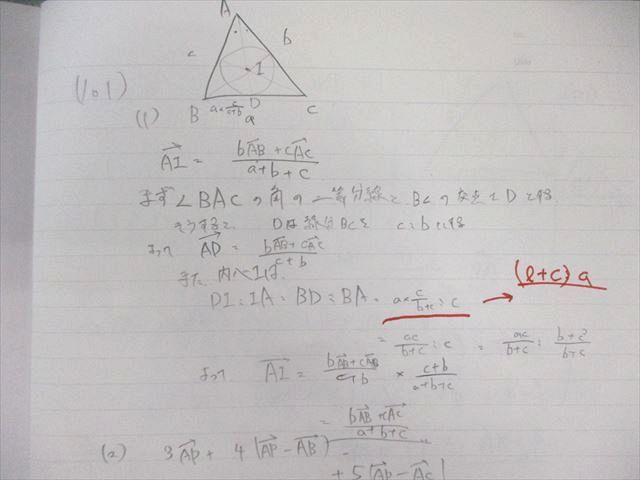 A
c
b
I
B
a×c/(c+b)
D
a
C
(101)
(1)
AI→ = (bAB→ + cAC→)/(a+b+c)
まず∠BACの角の二等分線とBCの交点をDとする
そうすると、Dは線分BCを c:bに
よって AD→ = (bAB→ + cAC→)/(c+b)
また、内心Iは、
DI:IA = BD:BA = a×c/(b+c) : c → (b+c):a
= ac/(b+c) : c = ac/(b+c) :
よって AI→ = (bAB→ + cAC→)/(c+b) × (c+b)/(a+b+c)
= (bAB→ + cAC→)/(a+b+c)
(2) 3AP→ + 4(AP→ − AB→)
+ 5(AP→ − AC→)